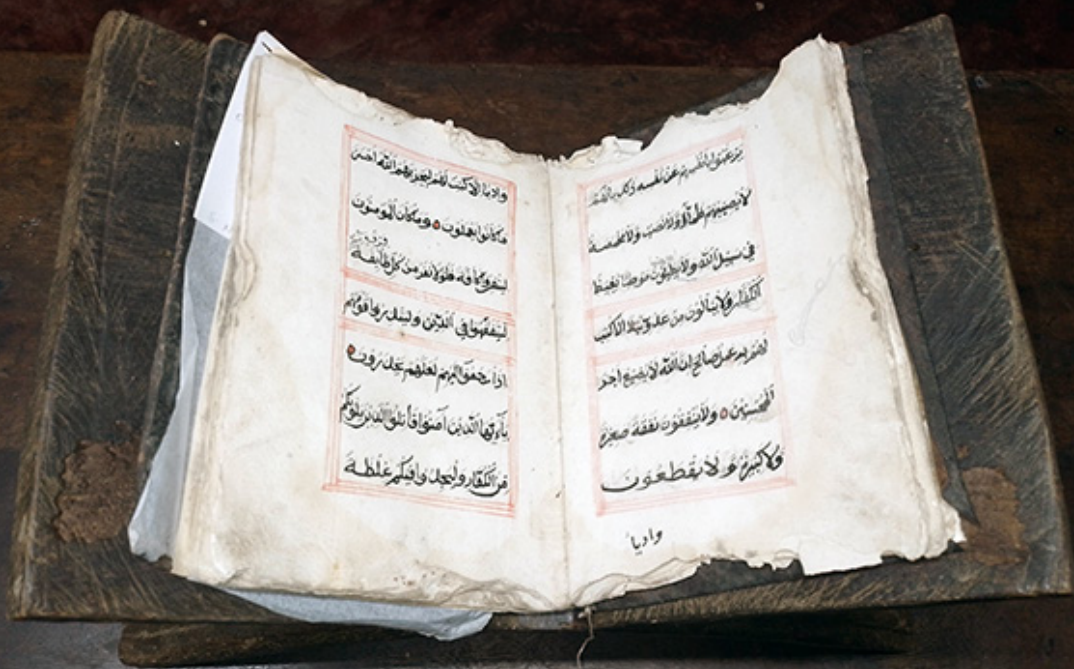 يرغبوا بأنفسهم عن نفسه ذلك بأنهم
لا يصيبهم ظمأ ولا نصب ولا مخمصة
في سبيل الله ولا يطئون موطئا يغيظ
الكفار ولا ينالون من عدو نيلا الا كتب
لهم به عمل صالح ان الله لا يضيع اجر
المحسنين ولا ينفقون نفقة صغيرة
ولا كبيرة ولا يقطعون
واديا
واديا الا كتب لهم ليجزيهم الله احسن
ما كانوا يعملون وما كان المؤمنون
لينفروا كافة فلولا نفر من كل فرقة طائفة
ليتفقهوا في الدين ولينذروا قومهم
اذا رجعوا اليهم لعلهم يحذرون
يآ ايها الذين آمنوا قاتلوا الذين يلونكم
من الكفار وليجدوا فيكم غلظة